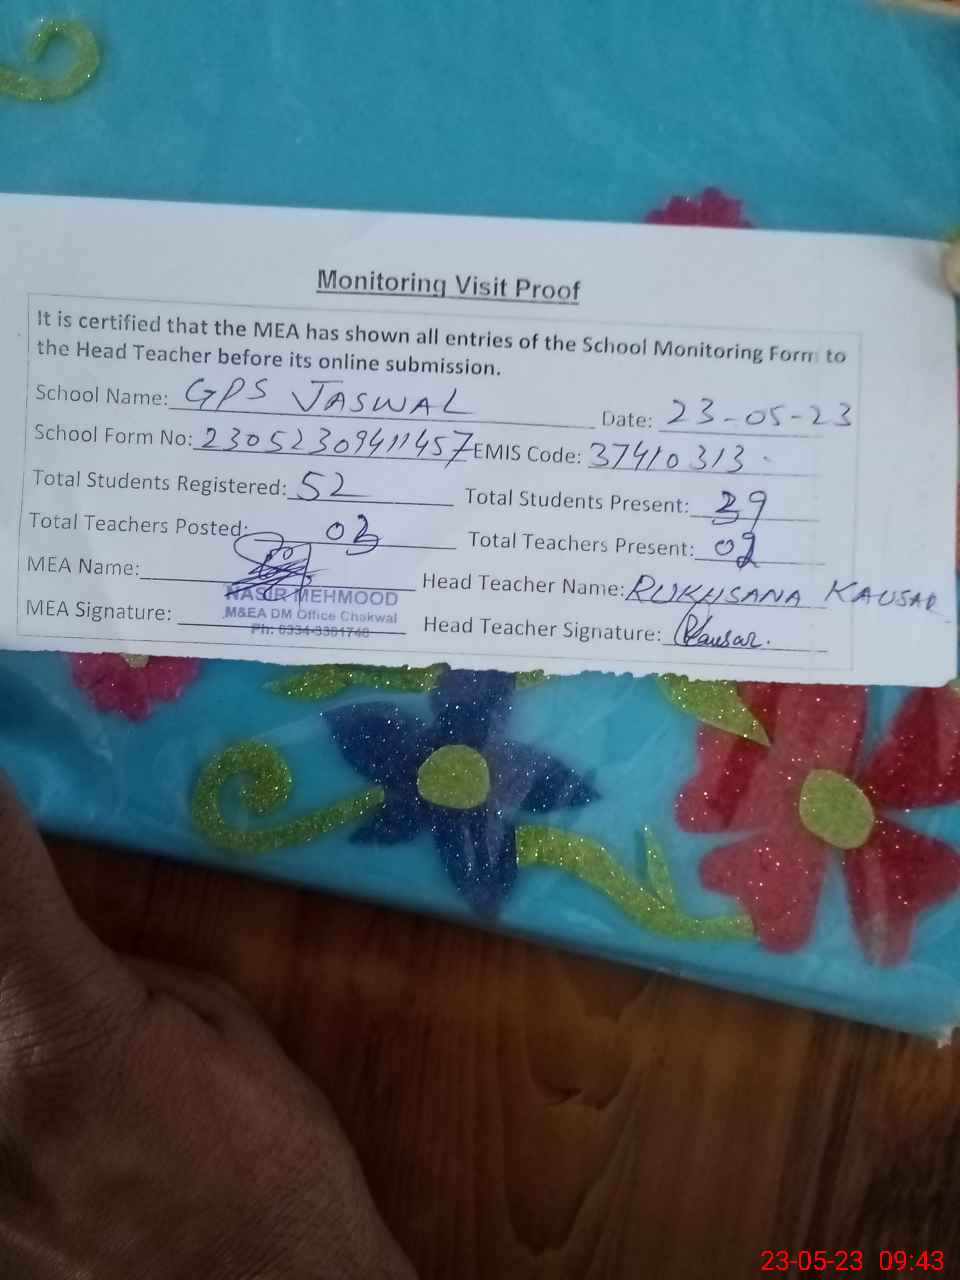 Monitoring Visit Proof
It is certified that the MEA has shown all entries of the School Monitoring Form to
the Head Teacher before its online submission.
School Name: GPS JASWAL Date: 23-05-23
School Form No: 230523094 11457 EMIS Code: 37410313
Total Students Registered: 52 Total Students Present: 39
Total Teachers Posted: 03 Total Teachers Present: 02
MEA Name: Head Teacher Name: RUKHSANA KAUSAR
NASIR MEHMOOD
M&EA DM Office Chakwal
MEA Signature: Head Teacher Signature: Kausar.
Ph:
23-05-23 09:43